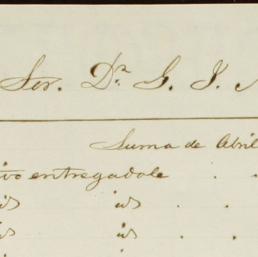 Ser. Dr. G. J.
Suma de Abril
ivo entregadole . .
id id . .
id id . .